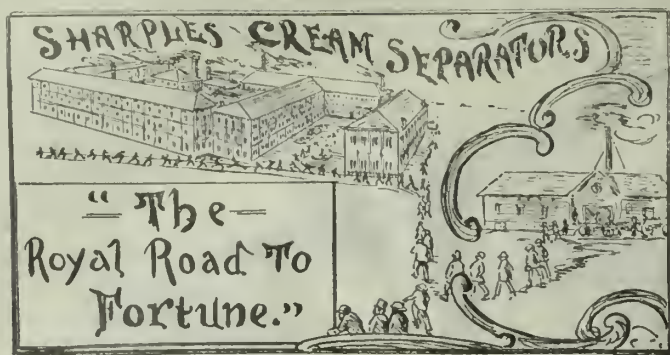 SHARPLES CREAM SEPARATORS
"The
Royal Road To
Fortune."